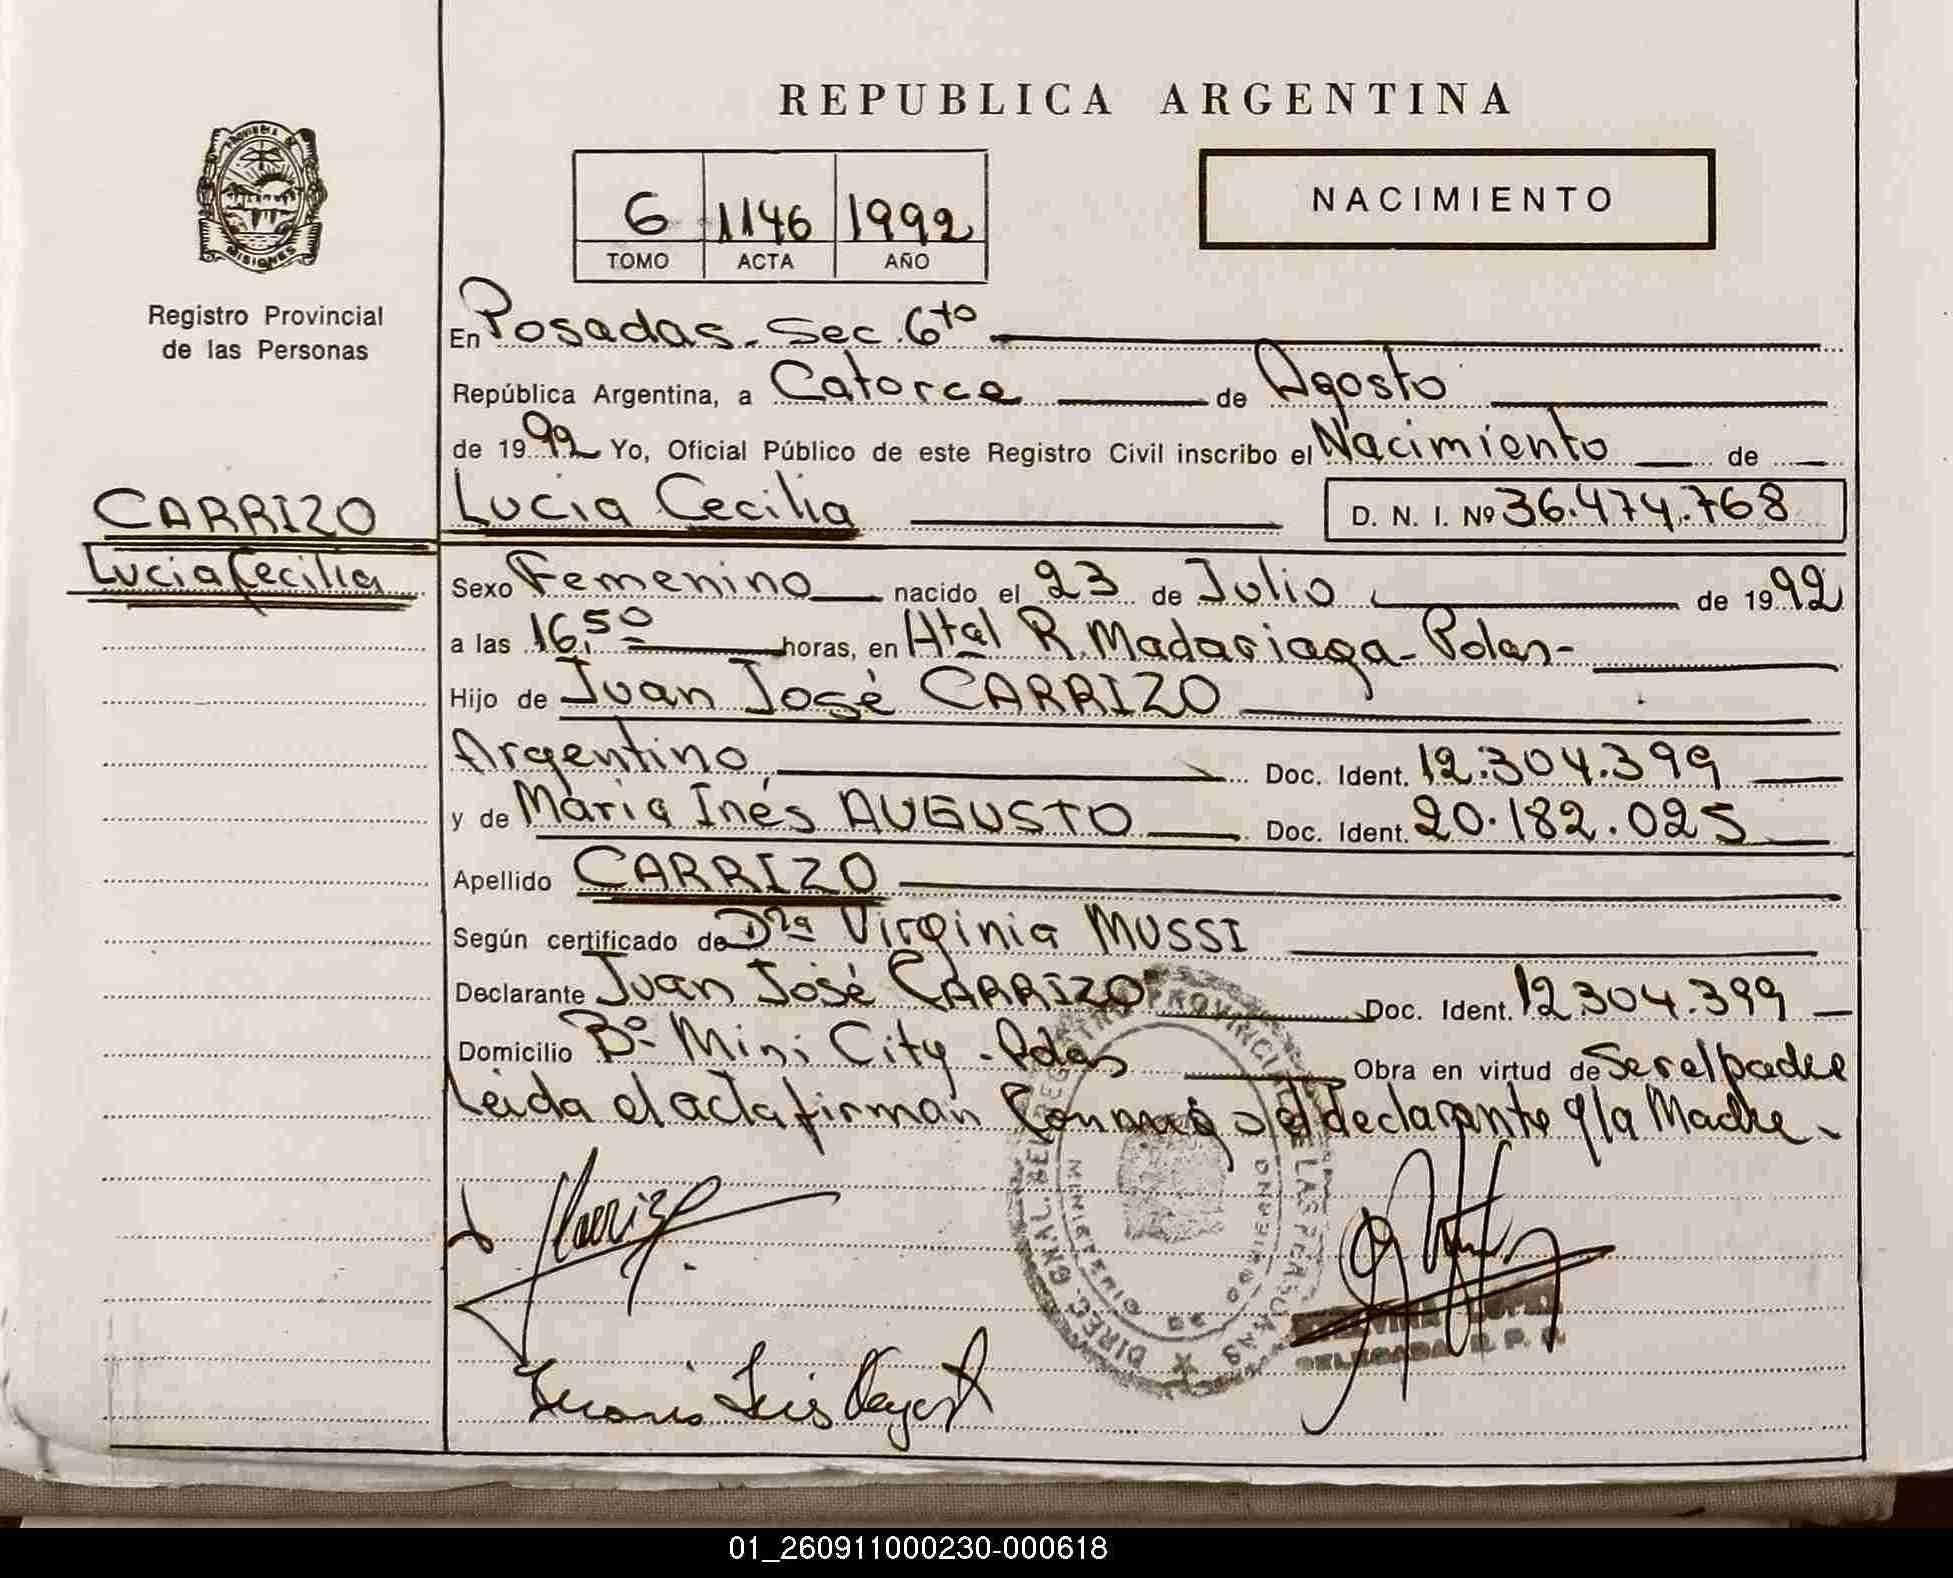 REPUBLICA ARGENTINA
PROVINCIA DE MISIONES
Registro Provincial
de las Personas
6 1146 1992
TOMO ACTA AÑO
NACIMIENTO
En Posadas - Sec. 6to
República Argentina, a Catorce de Agosto
de 1992 Yo, Oficial Público de este Registro Civil inscribo el Nacimiento de
CARRIZO
Lucia Cecilia
Lucia Cecilia D. N. I. Nº 36.474.768
Sexo Femenino nacido el 23 de Julio de 1992
a las 16,50 horas, en Htal R. Madariaga - Pdas -
Hijo de Juan José CARRIZO
Argentino Doc. Ident. 12.304.399
y de Maria Inés AUGUSTO Doc. Ident. 20.182.025
Apellido CARRIZO
Según certificado de Dra Virginia MUSSI
Declarante Juan José CARRIZO Doc. Ident. 12.304.399
Domicilio Bº Mini City - Pdas Obra en virtud de Ser el padre
Leida el acta firman Conmigo el declarante y la Madre.
DIREC. GRAL. DEL REGISTRO PROVINCIAL DE LAS PERSONAS
MINISTERIO DE GOBIERNO
Carrizo
DELEGADA R. P. P.
01_260911000230-000618